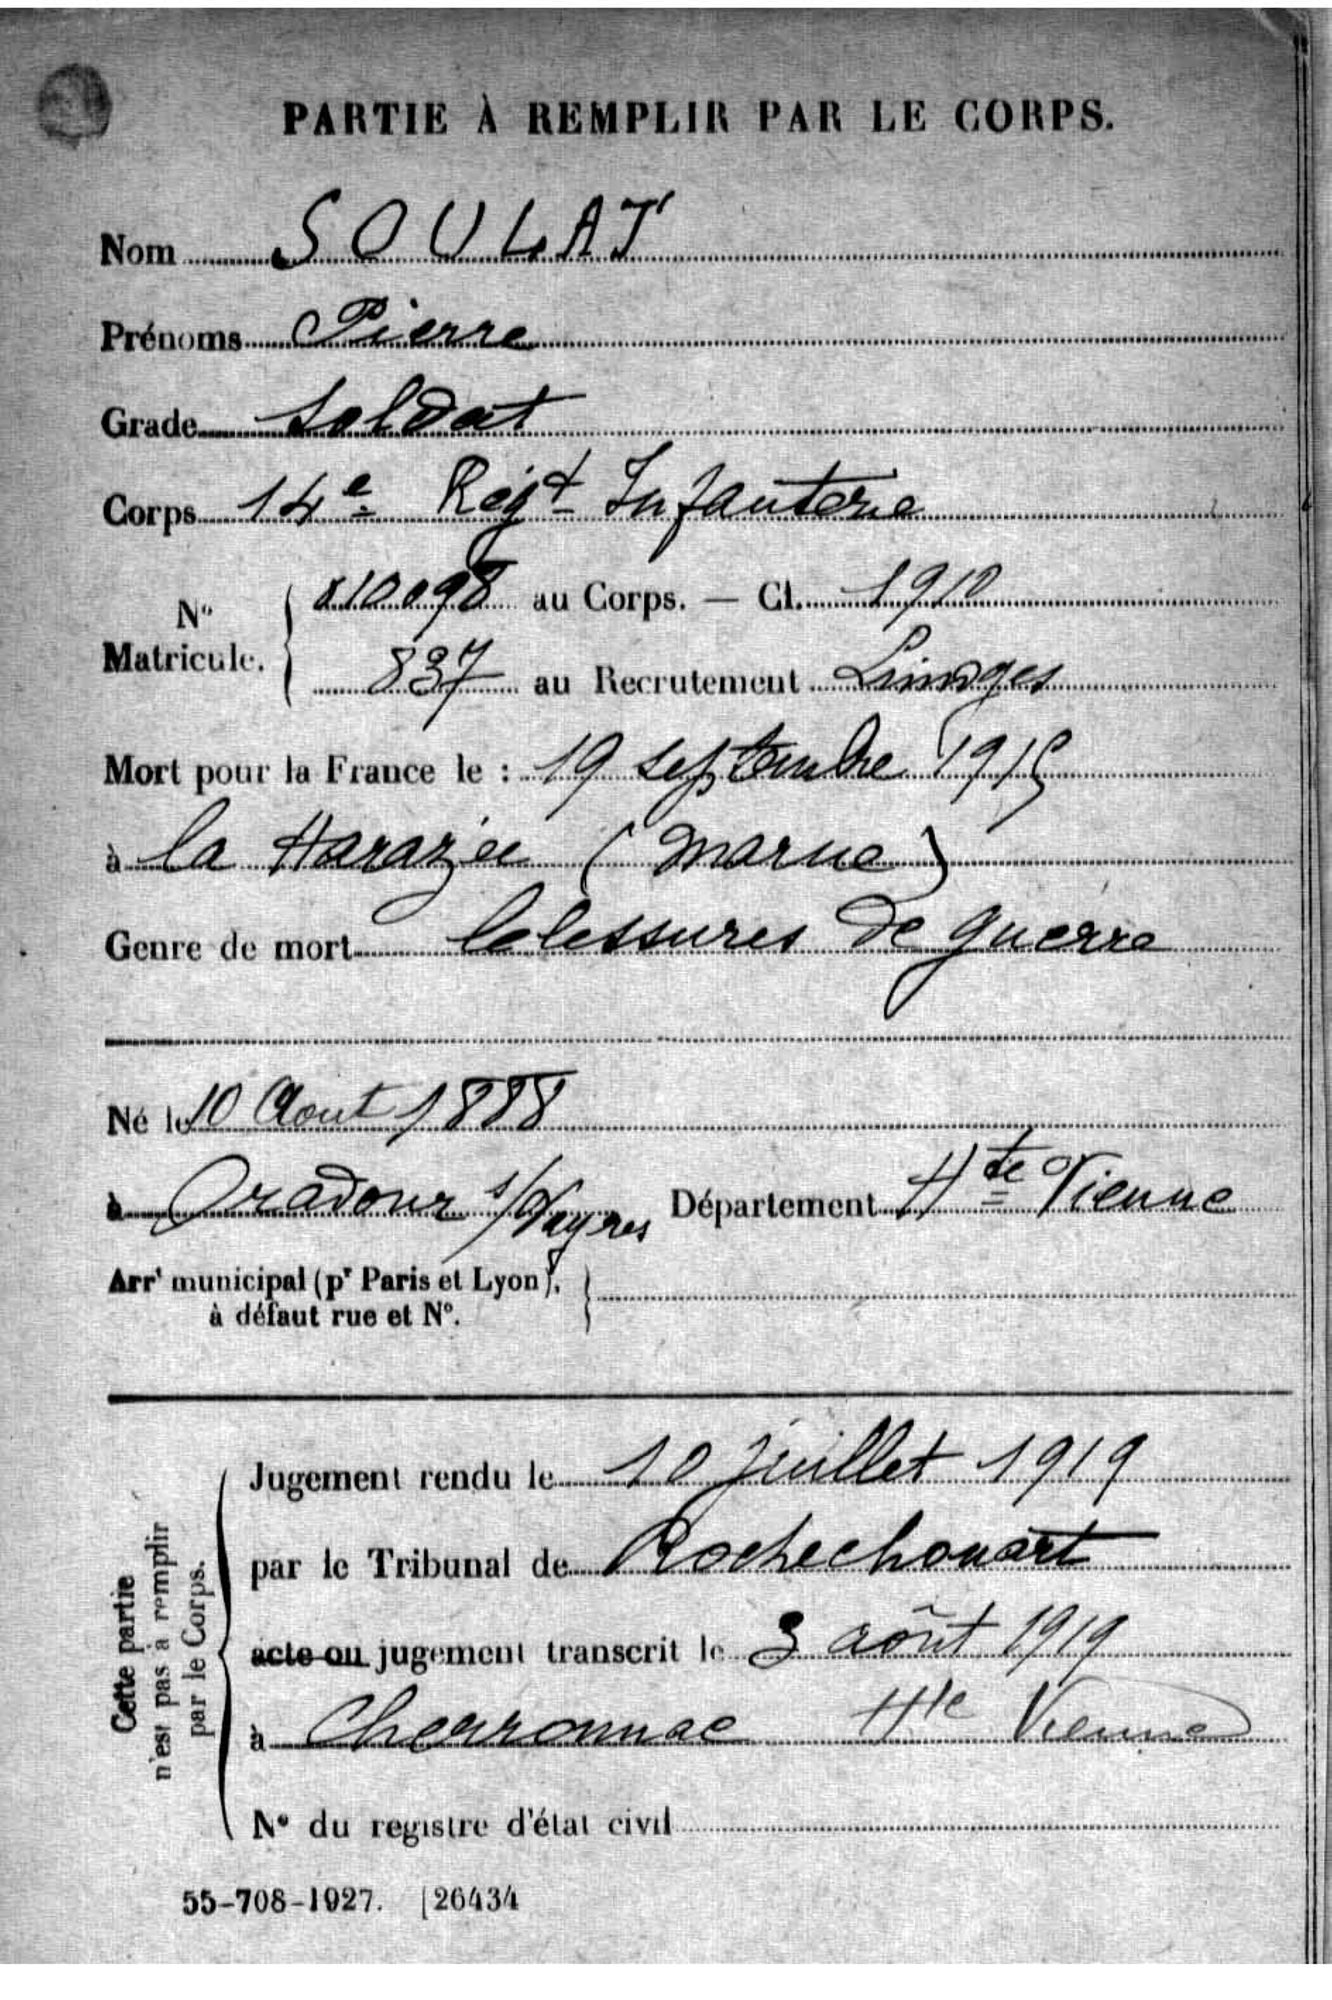 PARTIE À REMPLIR PAR LE CORPS.
Nom SOULAT
Prénoms Pierre
Grade Soldat
Corps 14e Régt Infanterie
N° Matricule. 10098 au Corps. — Cl. 1910
837 au Recrutement Limoges
Mort pour la France le : 19 septembre 1915
à la Harazée (Marne)
Genre de mort blessures de guerre
Né le 10 Aout 1888
à Oradour s/Vayres Département Hte Vienne
Arrt municipal (pr Paris et Lyon),
à défaut rue et N°.
Cette partie
n'est pas à remplir
par le Corps.
Jugement rendu le 10 juillet 1919
par le Tribunal de Rochechouart
acte ou jugement transcrit le 3 août 1919
à Cheronnac Hte Vienne
N° du registre d'état civil
55-708-1927. [26434